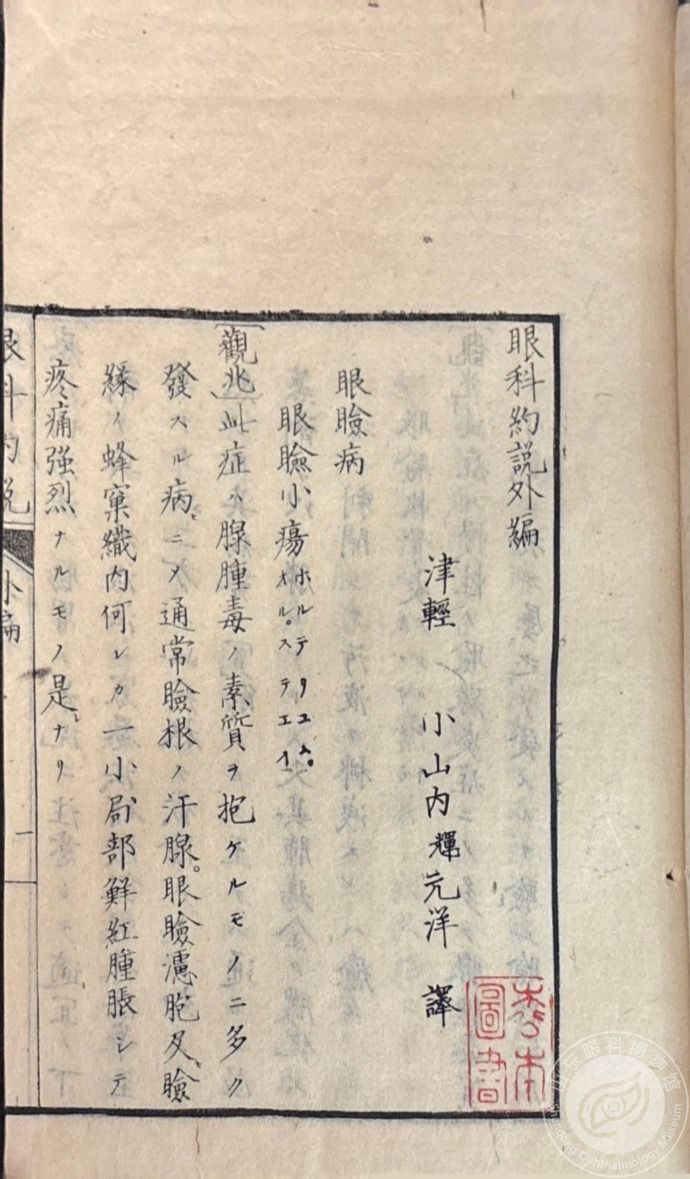 眼科約説外編
津輕　小山内輝元洋　譯
眼瞼病
眼瞼小瘍 ホルデリユム。オル。ステテエイ
〔觀兆〕此症ハ腺腫毒ノ素質ヲ抱ケルモノニ多ク
發スル病ニ〆通常瞼根ノ汗腺。眼瞼濾胞及瞼
緣ノ蜂窠織内何レカ一小局部鮮紅腫脹シテ
疼痛強烈ナルモノ是ナリ
眼科約説
外編
一
圖書
山东眼科博物馆
Shandong Ophthalmology Museum